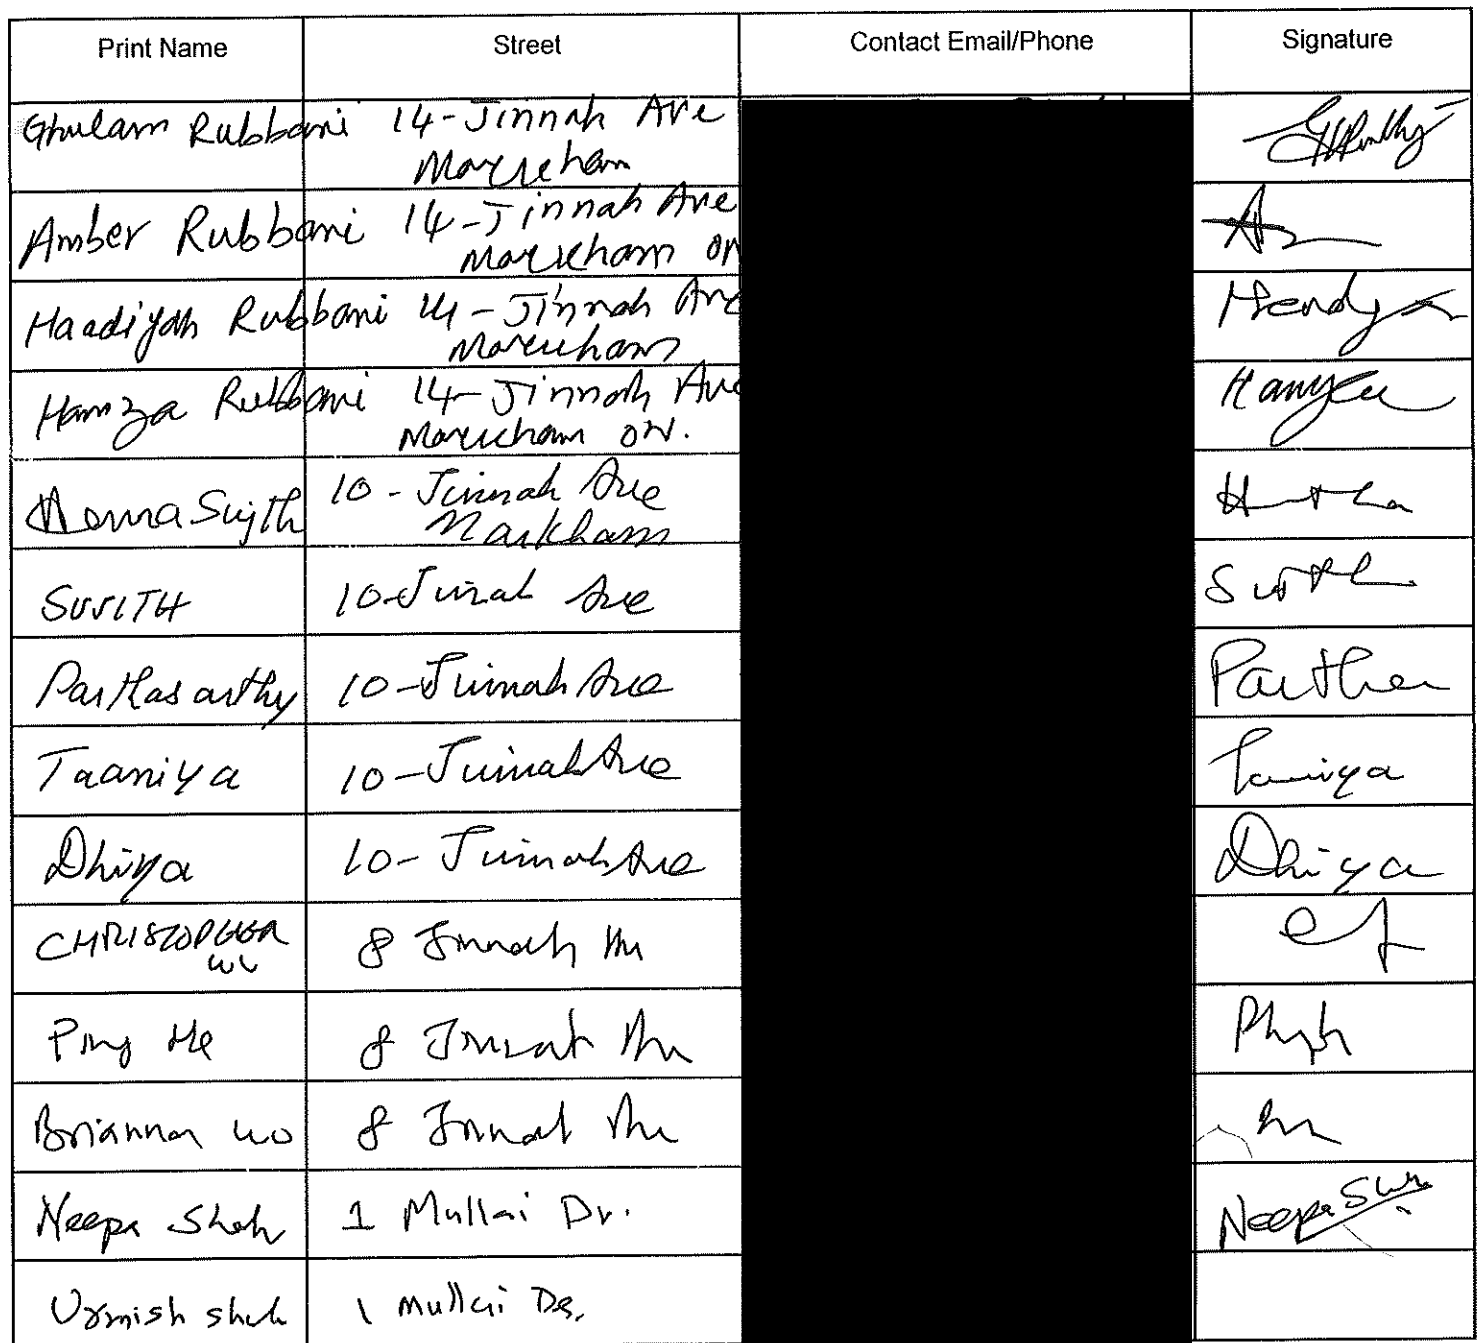 Print Name Street Contact Email/Phone Signature
Ghulam Rubbani 14-Jinnah Ave
Markham
Amber Rubbani 14-Jinnah Ave
Markham ON
Haadiyah Rubbani 14-Jinnah Ave
Markham
Hamza Rubbani 14-Jinnah Ave
Markham ON.
Hema Sujith 10-Jinnah Ave
Markham
SUJITH 10-Jinnah Ave
Parthasarthy 10-Jinnah Ave Partha
Taaniya 10-Jinnah Ave Taniya
Dhiya 10-Jinnah Ave Dhiya
CHRISTOPHER 8 Jinnah Ave
WU
Ping He 8 Jinnah Ave
Brianna Wu 8 Jinnah Ave
Neepa Shah 1 Mullai Dr. Neepa Shah
Urmish shah 1 mullai Dr.